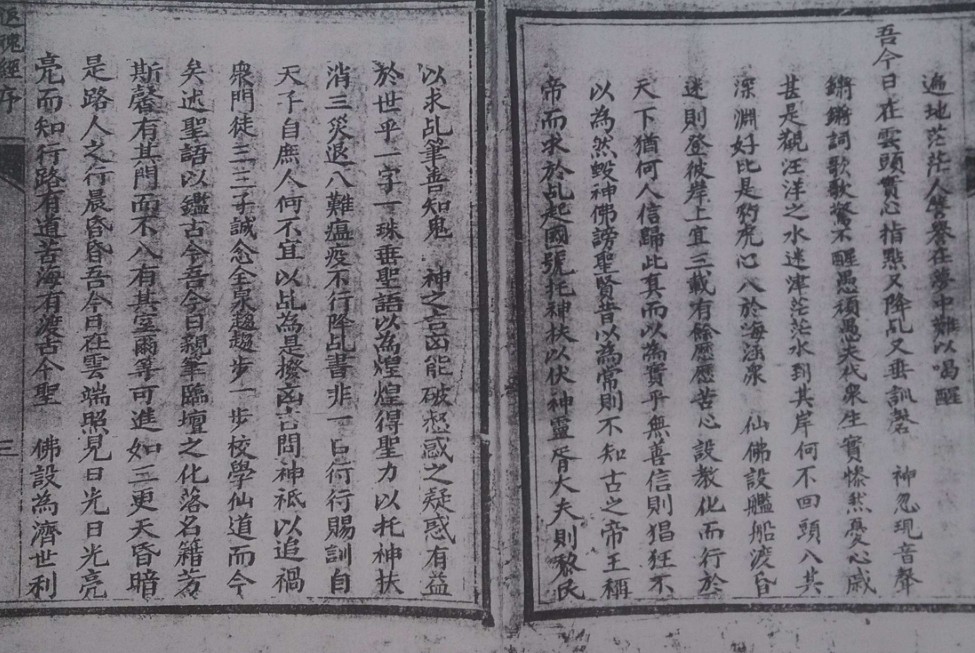 遍地茫茫人醫醫在夢中難以喝醒
吾今日在雲頭實心指點又降乩又垂訓磬 神忽現音聲
鏘鏘詞歌歌驚不醒愚頑愚夫我衆生實慘然憂心戚
甚是觀汪洋之水迷津茫茫水到其岸何不回頭入其
深淵好比是豹虎心入於海涵衆 仙佛設艦船渡昏
迷則登彼岸上宜三載有餘應應苦心設教化而行於
天下猶何人信歸此真而以為實乎無善信則猖狂不
以為然毀神佛謗聖賢昔以為常則不知古之帝王稱
帝而求於乩起國號托神扶以伏神靈胥大夫則黎民
以求乩筆善知鬼 神之言函能破愆惑之疑惑有益
於世乎一字一珠垂聖語以為煌煌得聖力以托神扶
消三災退八難瘟疫不行降乩書非一日行行賜訓自
天子自庶人何不宜以乩為是擬函言問神祗以追禍
衆門徒三三子誠念全衆趨趨步一步校學仙道而今
矣述聖語以鑑古今吾今日親筆臨壇之化落名籍芳
斯馨有其門而不入有其室爾等可進如三更天昏暗
是路人之行晨昏昏吾今日在雲端照見日光日光亮
亮而知行路有道苦海有渡古今聖 佛設為濟世利
經序
三